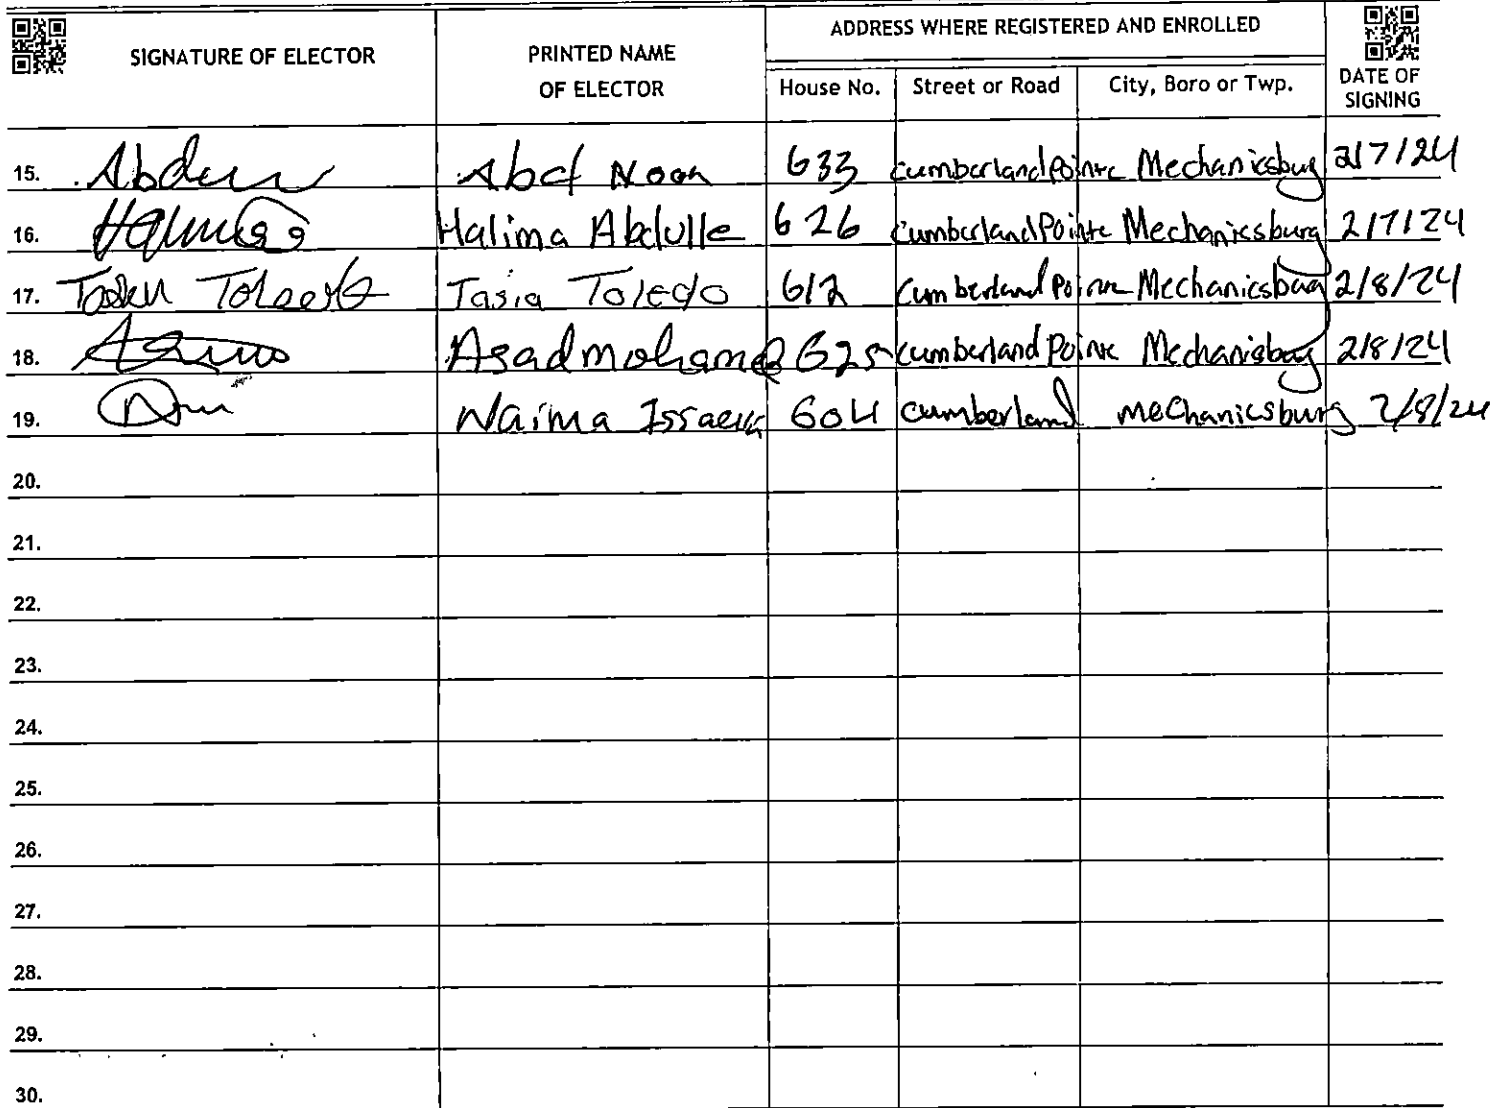 SIGNATURE OF ELECTOR
PRINTED NAME
OF ELECTOR
ADDRESS WHERE REGISTERED AND ENROLLED
House No. Street or Road City, Boro or Twp.
DATE OF
SIGNING
15. Abd Noor 633 Cumberland Pointe Mechanicsburg 2/7/24
16. Halima Abdulle 626 Cumberland Pointe Mechanicsburg 2/7/24
17. Tasia Toledo 612 Cumberland Pointe Mechanicsburg 2/8/24
18. Asad mohamed 625 Cumberland Pointe Mechanicsburg 2/8/24
19. Naima 604 Cumberland mechanicsburg 2/8/24
20.
21.
22.
23.
24.
25.
26.
27.
28.
29.
30.